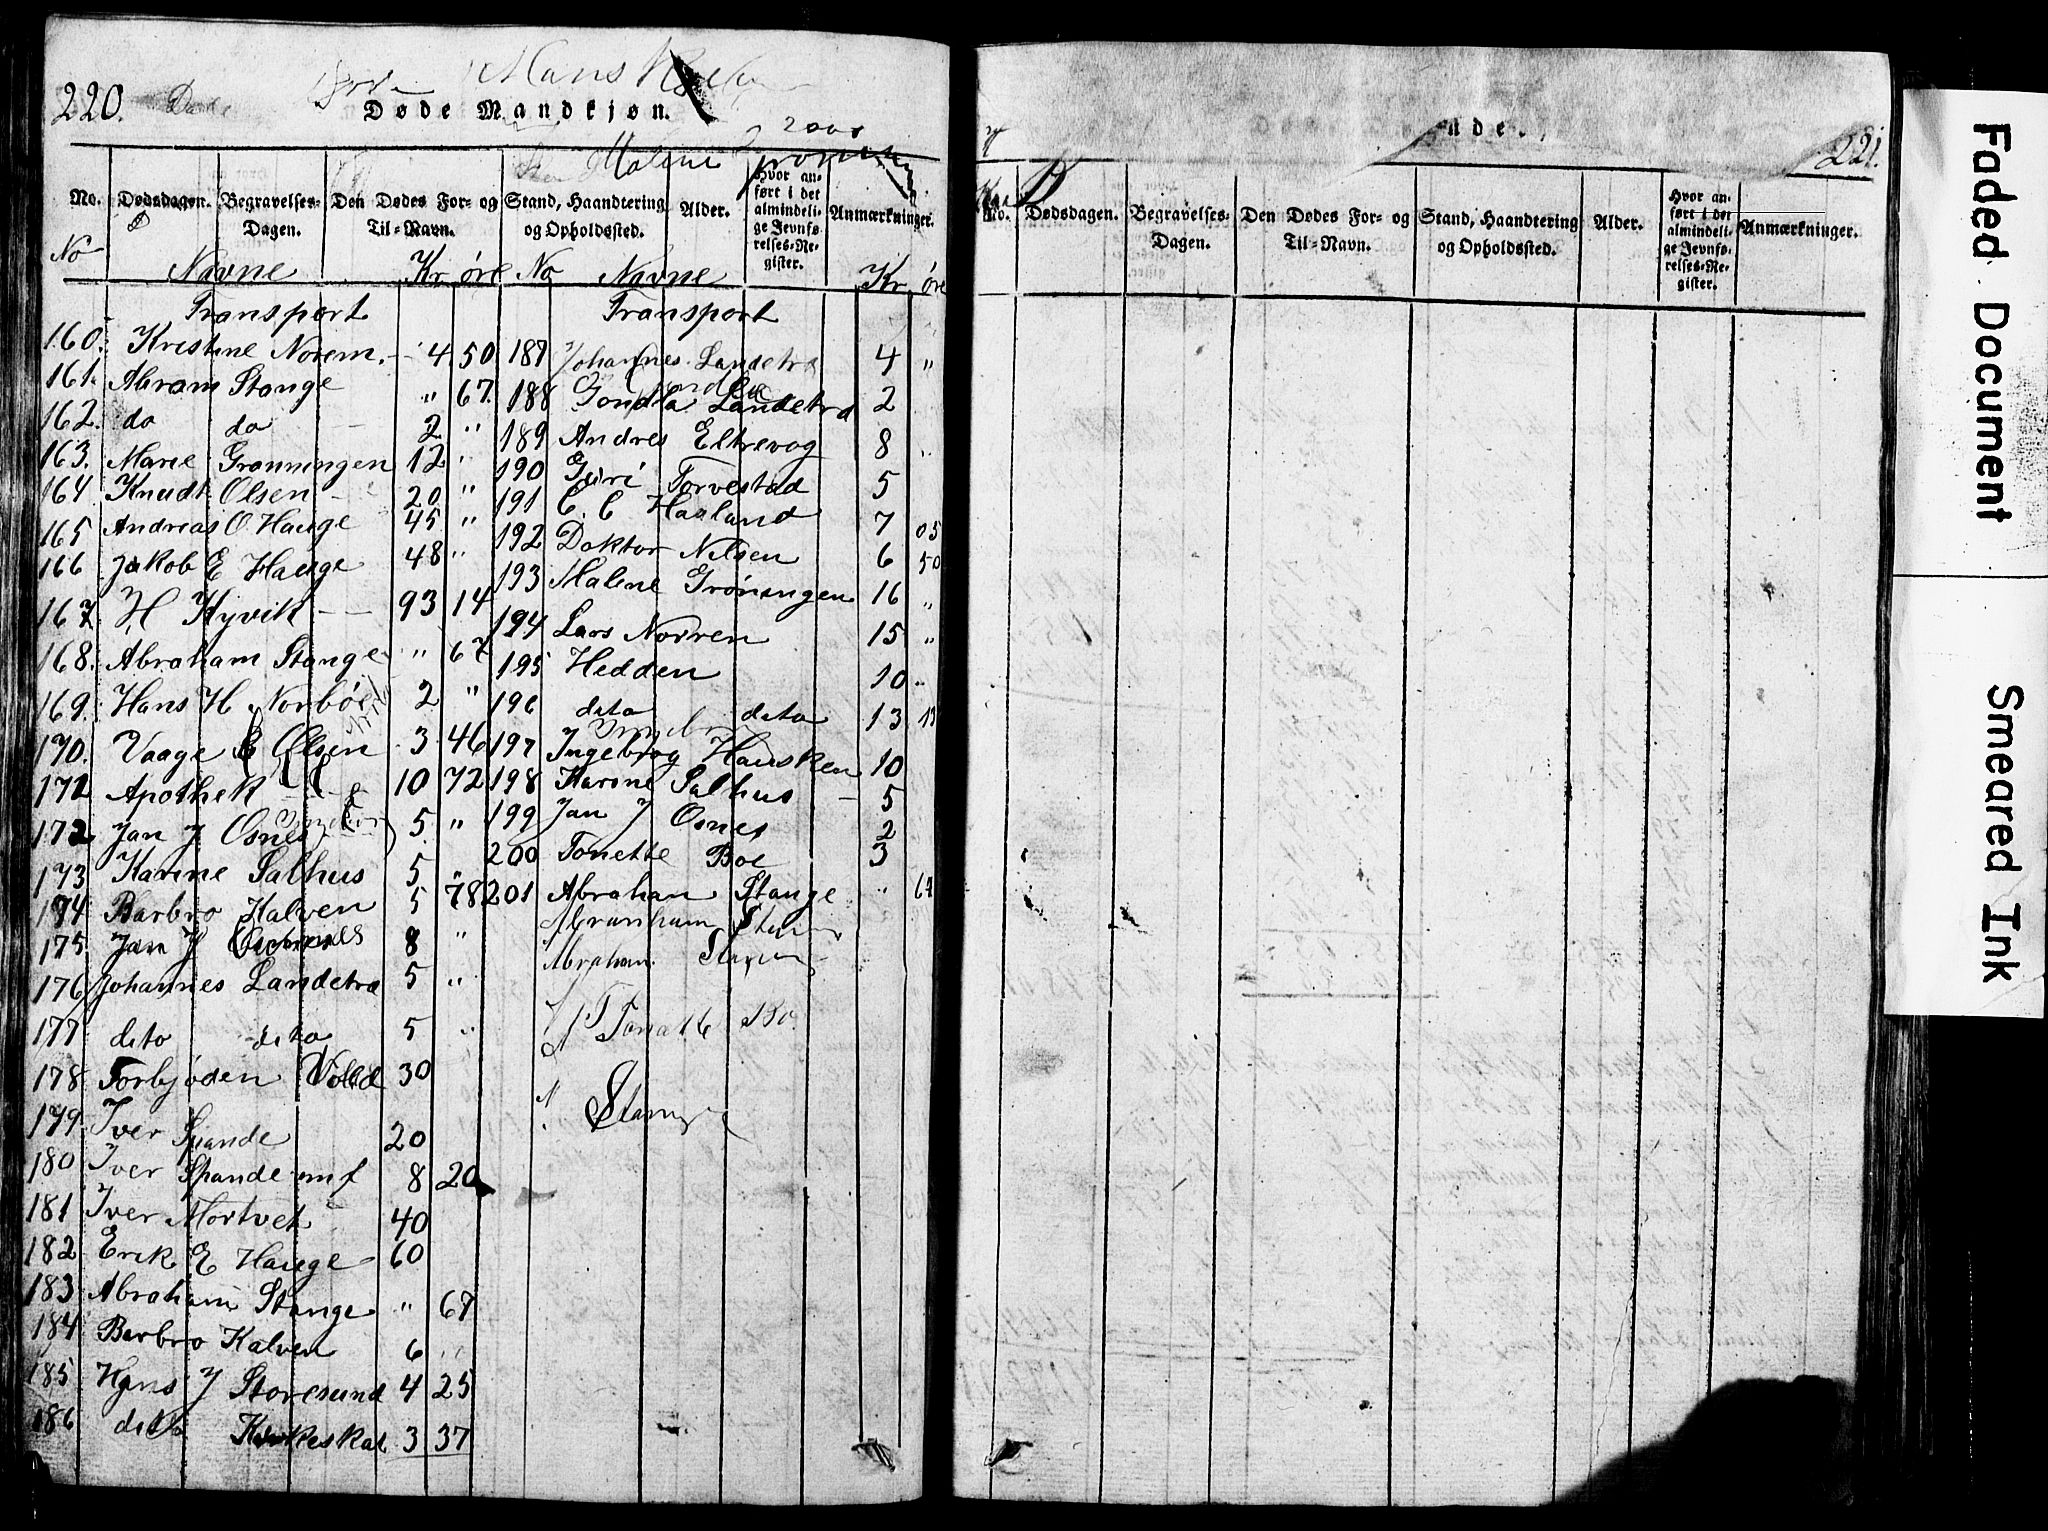 220.
Døde Mandkjøn.
Malene
No. Dødsdagen. Begravelses-Dagen. Den Dødes For- og Til-Navn. Stand, Haandtering og Opholdssted. Alder. Hvor anført i det almindelige Jevnførelses-Register. Anmærkninger.
No Navne Kr øre No Navne Kr øre
Transport Transport
160. Kristine Norem. 4 50
161. Abram Stange " 67
162. do do 2 "
163. Marie Grønningen 12 "
164 Knudt Olsen 20 "
165 Andreas O. Hauge 45 "
166 Jakob E Hauge 48 "
167 H Kyvik 93 14
168. Abraham Stange " 67
169. Hans H Norbøe 2 "
170. Vaage E Olsen 3 46
171 Apothek 10 72
172 Jan J Osnes 5 "
173 Karine Salhus 5 "
174 Barbro Kalven 5 78
175 Jan J 8 "
176 Johannes Landetra 5 "
177 dito dito 5 "
178 Torbjøden Volld 30
179 Iver Spande 20
180 Iver Spande 8 20
181 Iver Mortvet 40
182 Erik E Hauge 60
183 Abraham Stange " 67
184 Barbro Kalven 6 "
185 Hans J Storesund 4 25
186 dito Kirkeskat 3 37
187 Johannes Landetra 4 "
188 Landetra 2
189 Andres Eltrevog 8 "
190 Guri Torvestad 5
191 C. C Haaland 7 05
192 Doktor Nilsen 6 50
193 Malene Grøningen 16 "
194 Lars Norren 15 "
195 Hedden 10 "
196 dito dito 13 13
197 Ingebrog Hausken 10
198 Karine Salhus 5
199 Jan J Osnes 2
200 Tonette Boe 3
201 Abraham Stange " 67
Abraham
221.
No. Dødsdagen. Begravelses-Dagen. Den Dødes For- og Til-Navn. Stand, Haandtering og Opholdssted. Alder. Hvor anført i det almindelige Jevnførelses-Register. Anmærkninger.
Faded Document
Smeared Ink